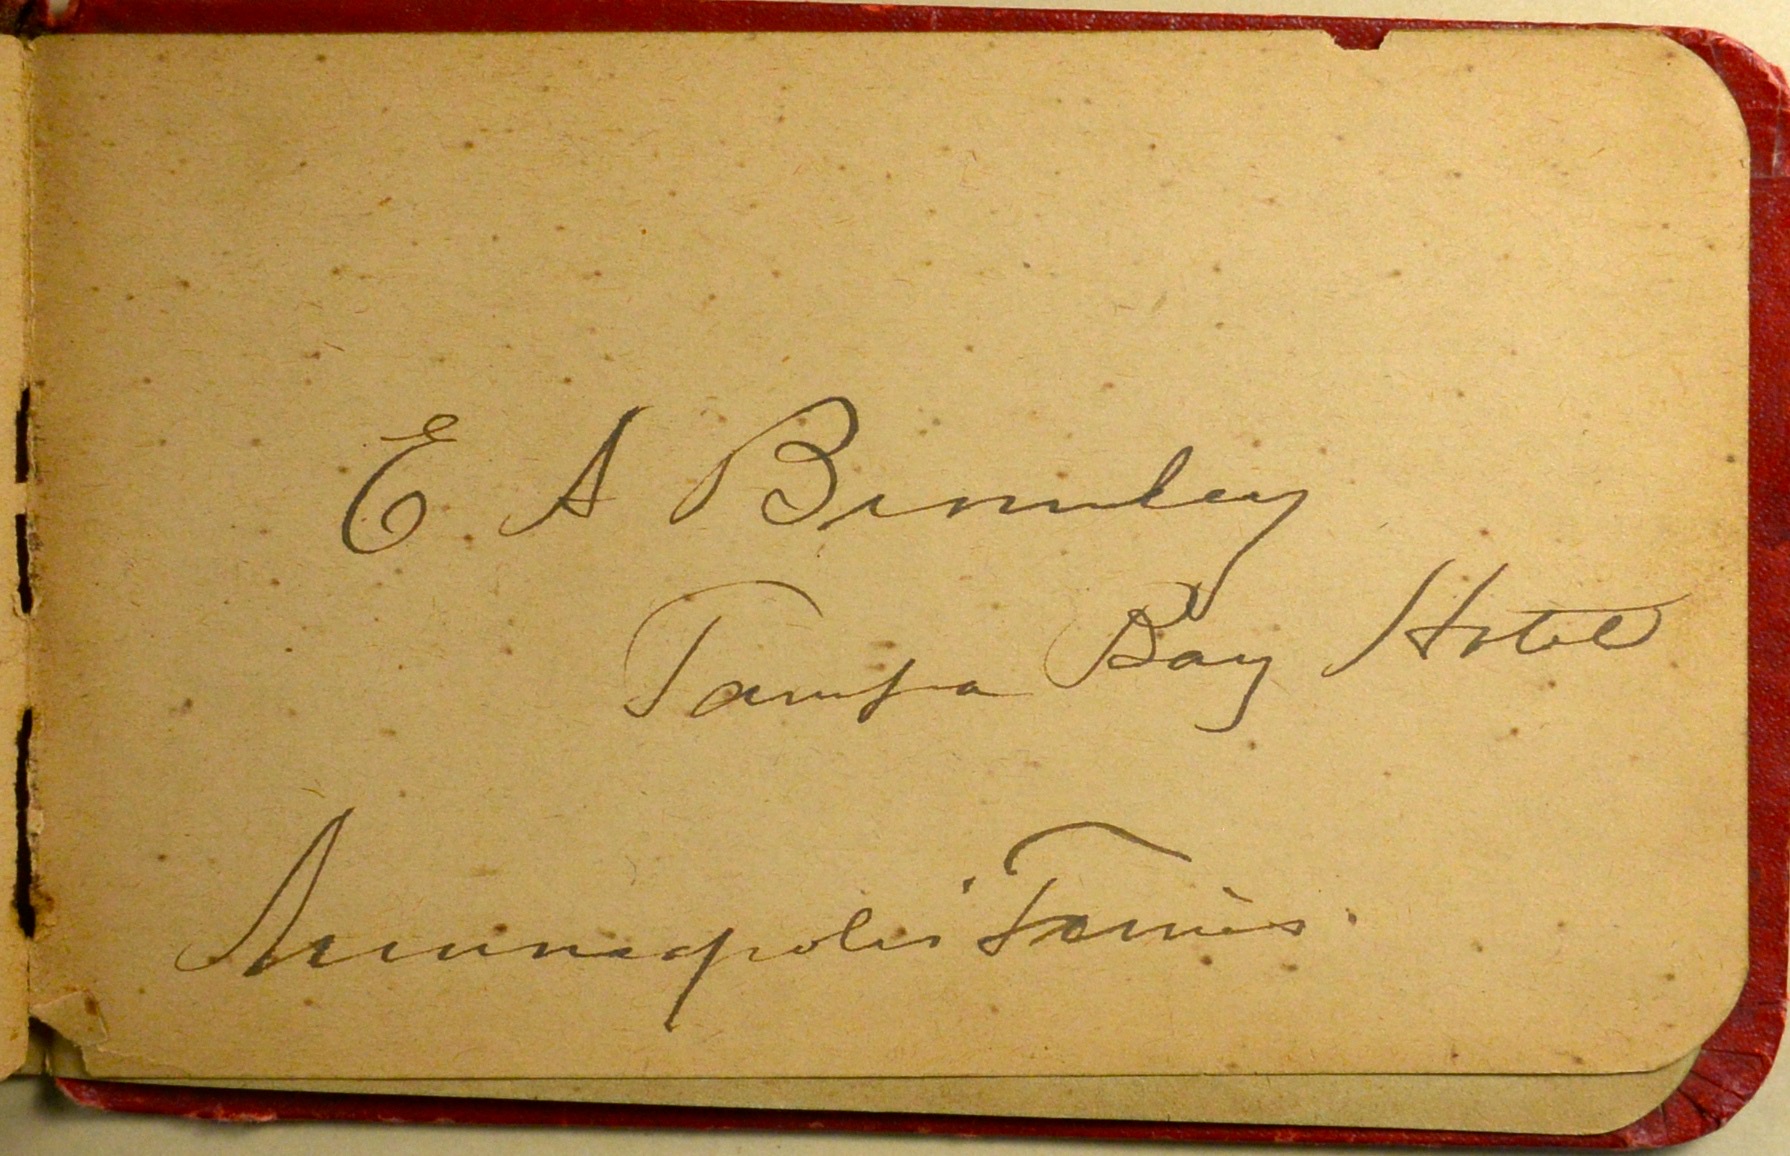 E. A Bromley
Tampa Bay Hotel
Minneapolis Times.